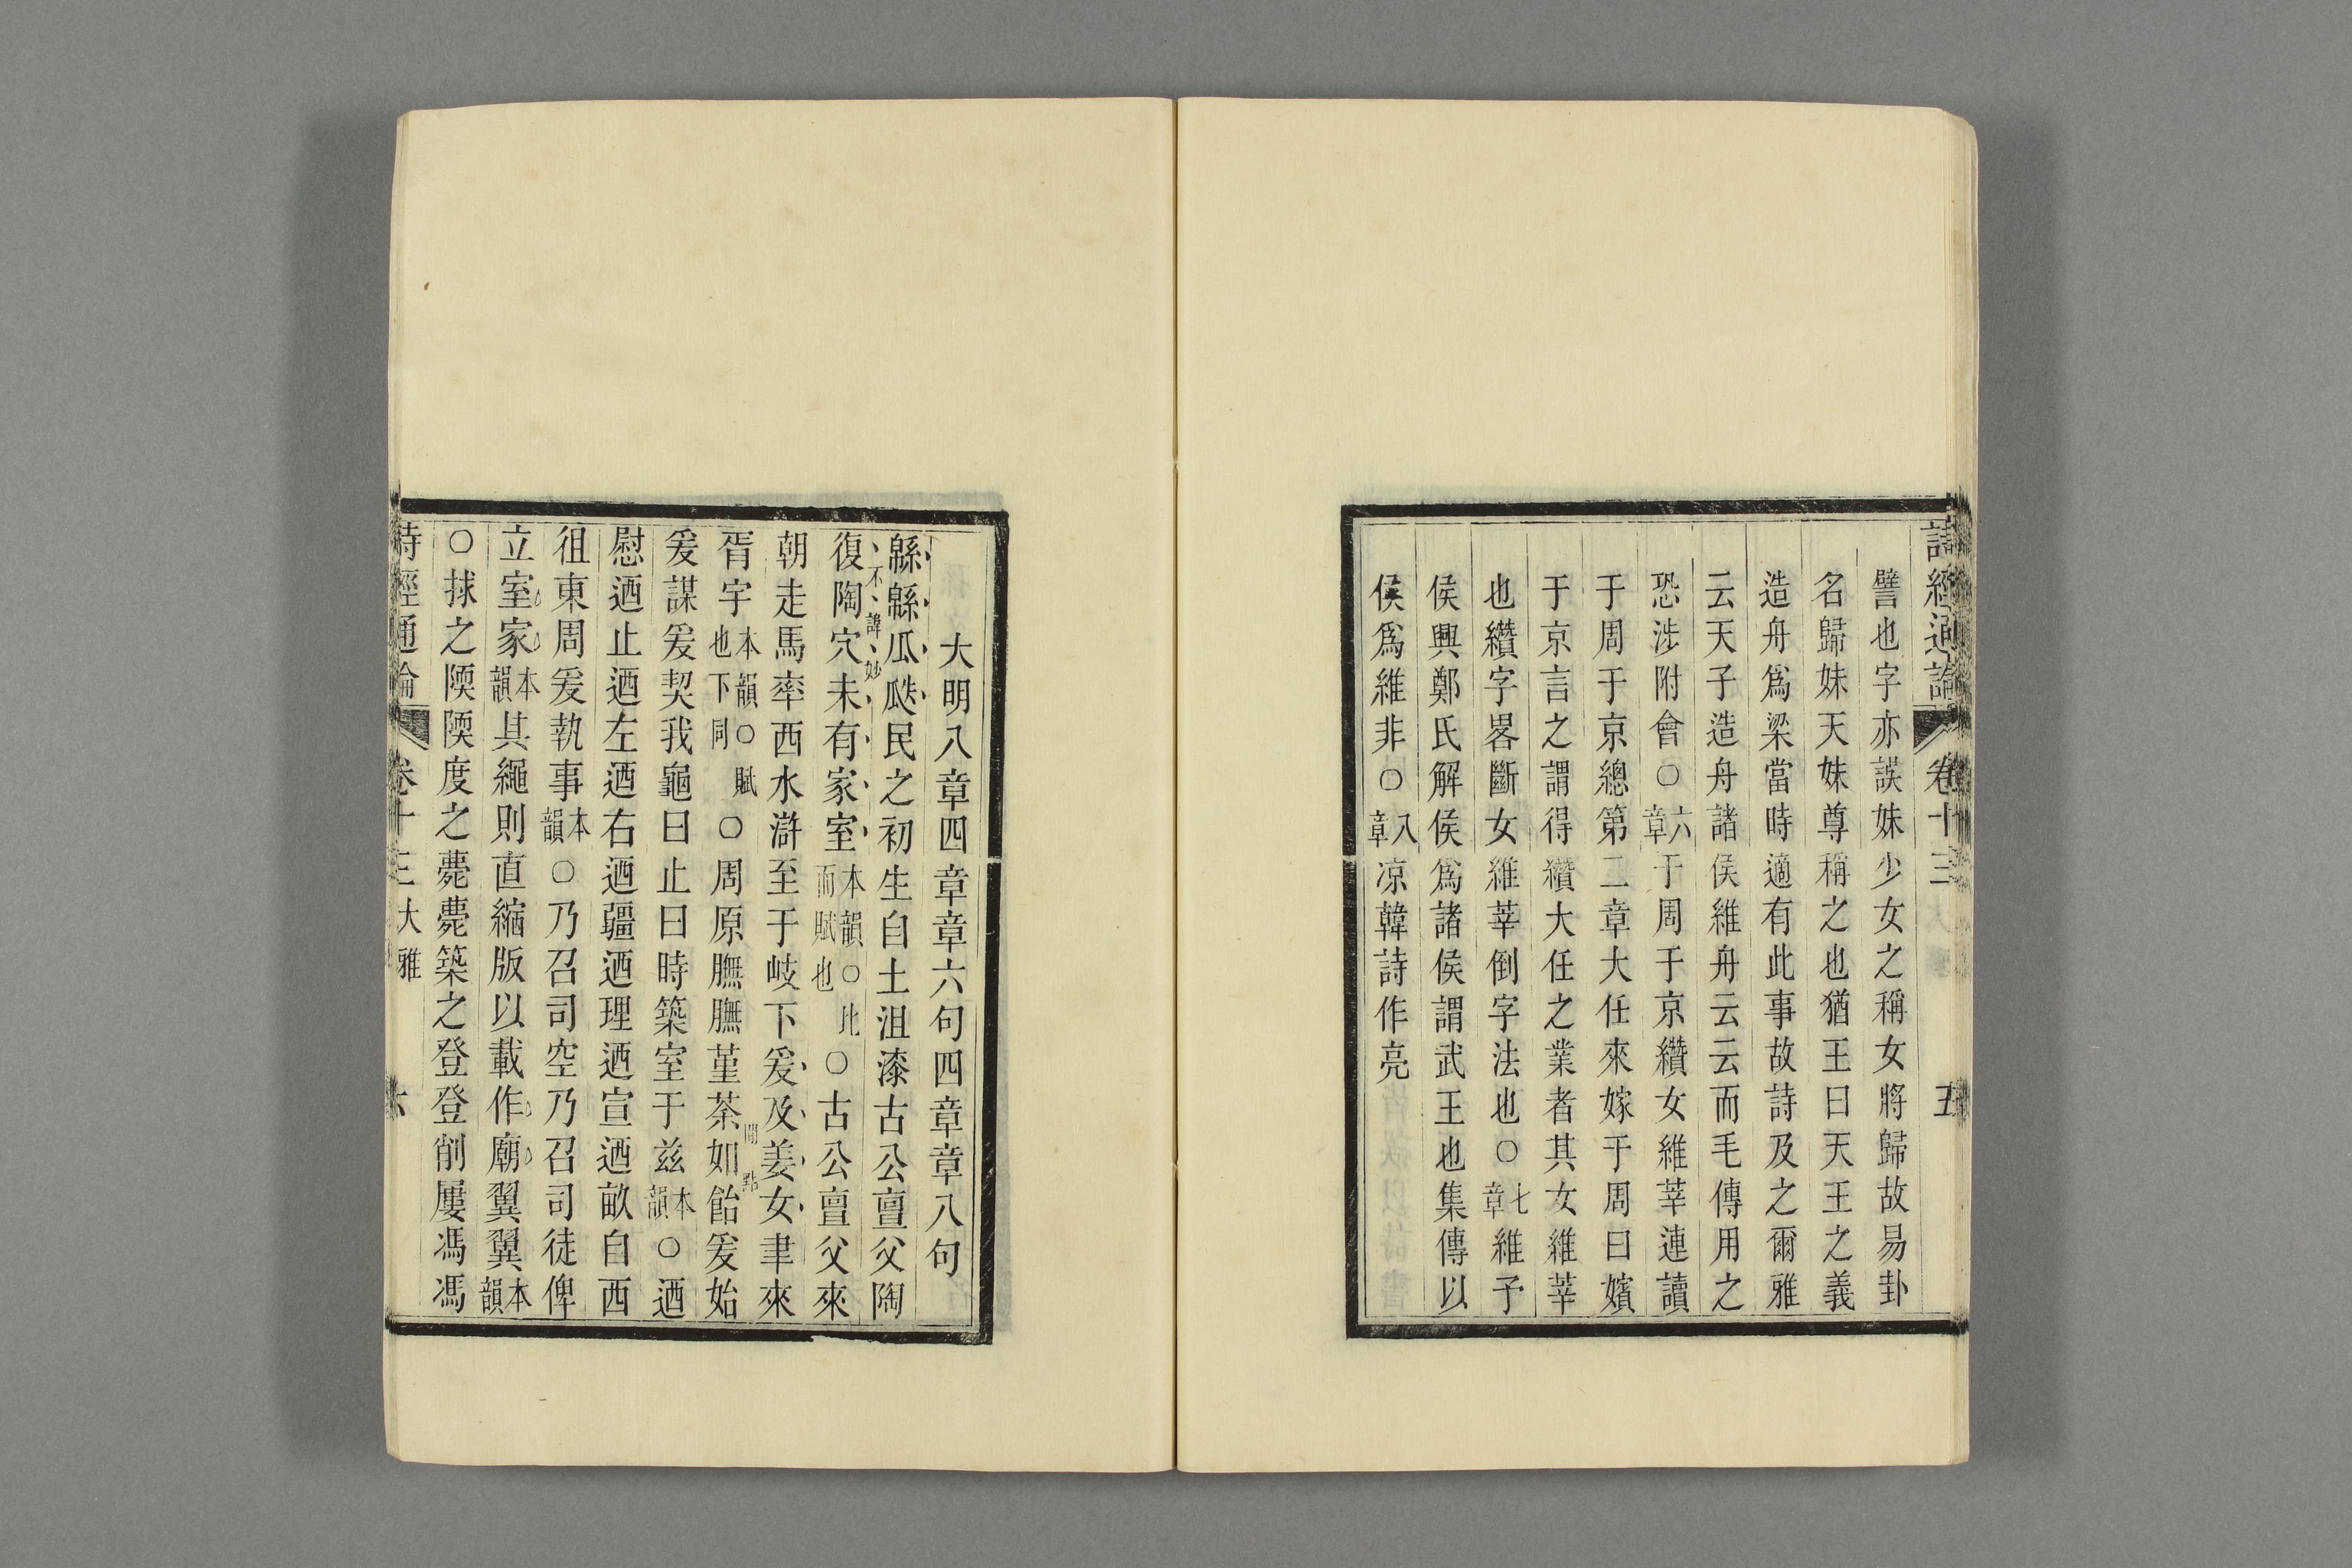 詩經通論 卷十三 五
譬也字亦誤妹少女之稱女將歸故易卦
名歸妹天妹尊稱之也猶王曰天王之義
造舟爲梁當時適有此事故詩及之爾雅
云天子造舟諸侯維舟云云而毛傳用之
恐涉附會○六章于周于京纘女維莘連讀
于周于京總第二章大任來嫁于周曰嬪
于京言之謂得纘大任之業者其女維莘
也纘字畧斷女維莘倒字法也○七章維予
侯興鄭氏解侯爲諸侯謂武王也集傳以
侯爲維非○八章凉韓詩作亮
大明八章四章章六句四章章八句
緜緜瓜瓞民之初生自土沮漆古公亶父陶
不諱妙
復陶穴未有家室本韻○比而賦也○古公亶父來
朝走馬率西水滸至于岐下爰及姜女聿來
胥宇本韻○賦也下同○周原膴膴堇荼如飴爰始
開點
爰謀爰契我龜曰止曰時築室于兹本韻○迺
慰迺止迺左迺右迺疆迺理迺宣迺畝自西
徂東周爰執事本韻○乃召司空乃召司徒俾
立室家本韻其繩則直縮版以載作廟翼翼本韻
○捄之陾陾度之薨薨築之登登削屢馮馮
詩經通論 卷十三 大雅 六